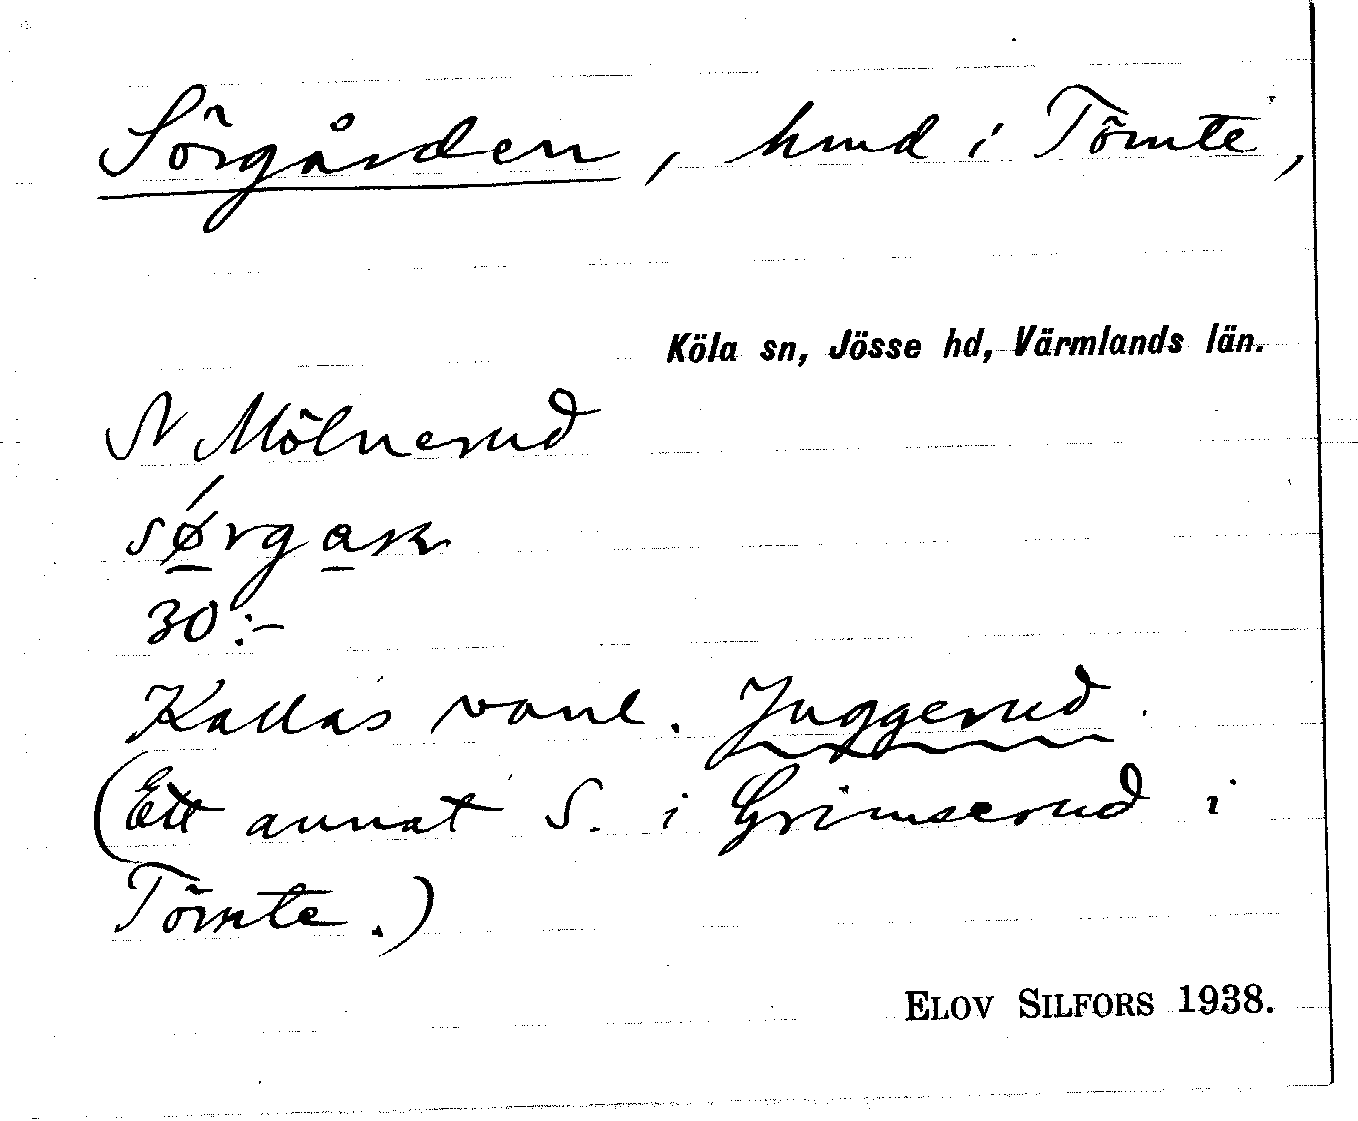 Sörgården, hmd i Tömte,
Köla sn, Jösse hd, Värmlands län.
N Mölnerud
30:-
Kallas vanl. Juggerud.
(Ett annat S. i Grimserud i
Tömte.)
ELOV SILFORS 1938.